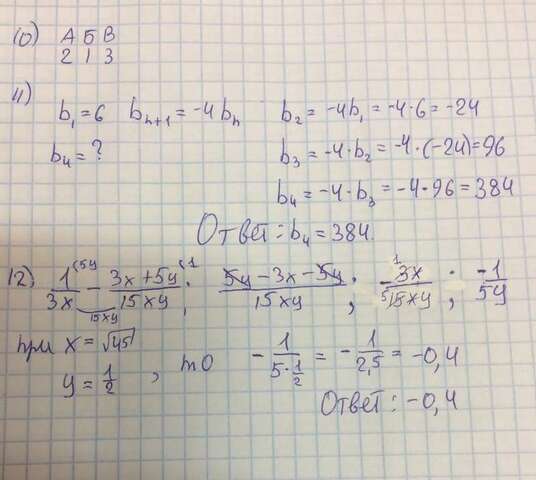 10) А Б В
2 1 3
11)
b₁ = 6 bₙ₊₁ = -4bₙ b₂ = -4b₁ = -4·6 = -24
b₄ = ? b₃ = -4·b₂ = -4·(-24) = 96
b₄ = -4·b₃ = -4·96 = 384
Ответ: b₄ = 384.
12) 1/3x (5y - (3x+5y)/15xy (1 ; (5y-3x-5y)/15xy ; -3x/15xy 1 5 ; -1/5y
15xy
при x = √45
y = 1/2 , то -1/(5·1/2) = -1/2,5 = -0,4
Ответ: -0,4